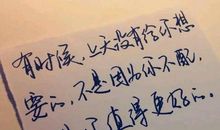 有时候,上天没有给你想
要的,不是因为你不配,
值得更好的。